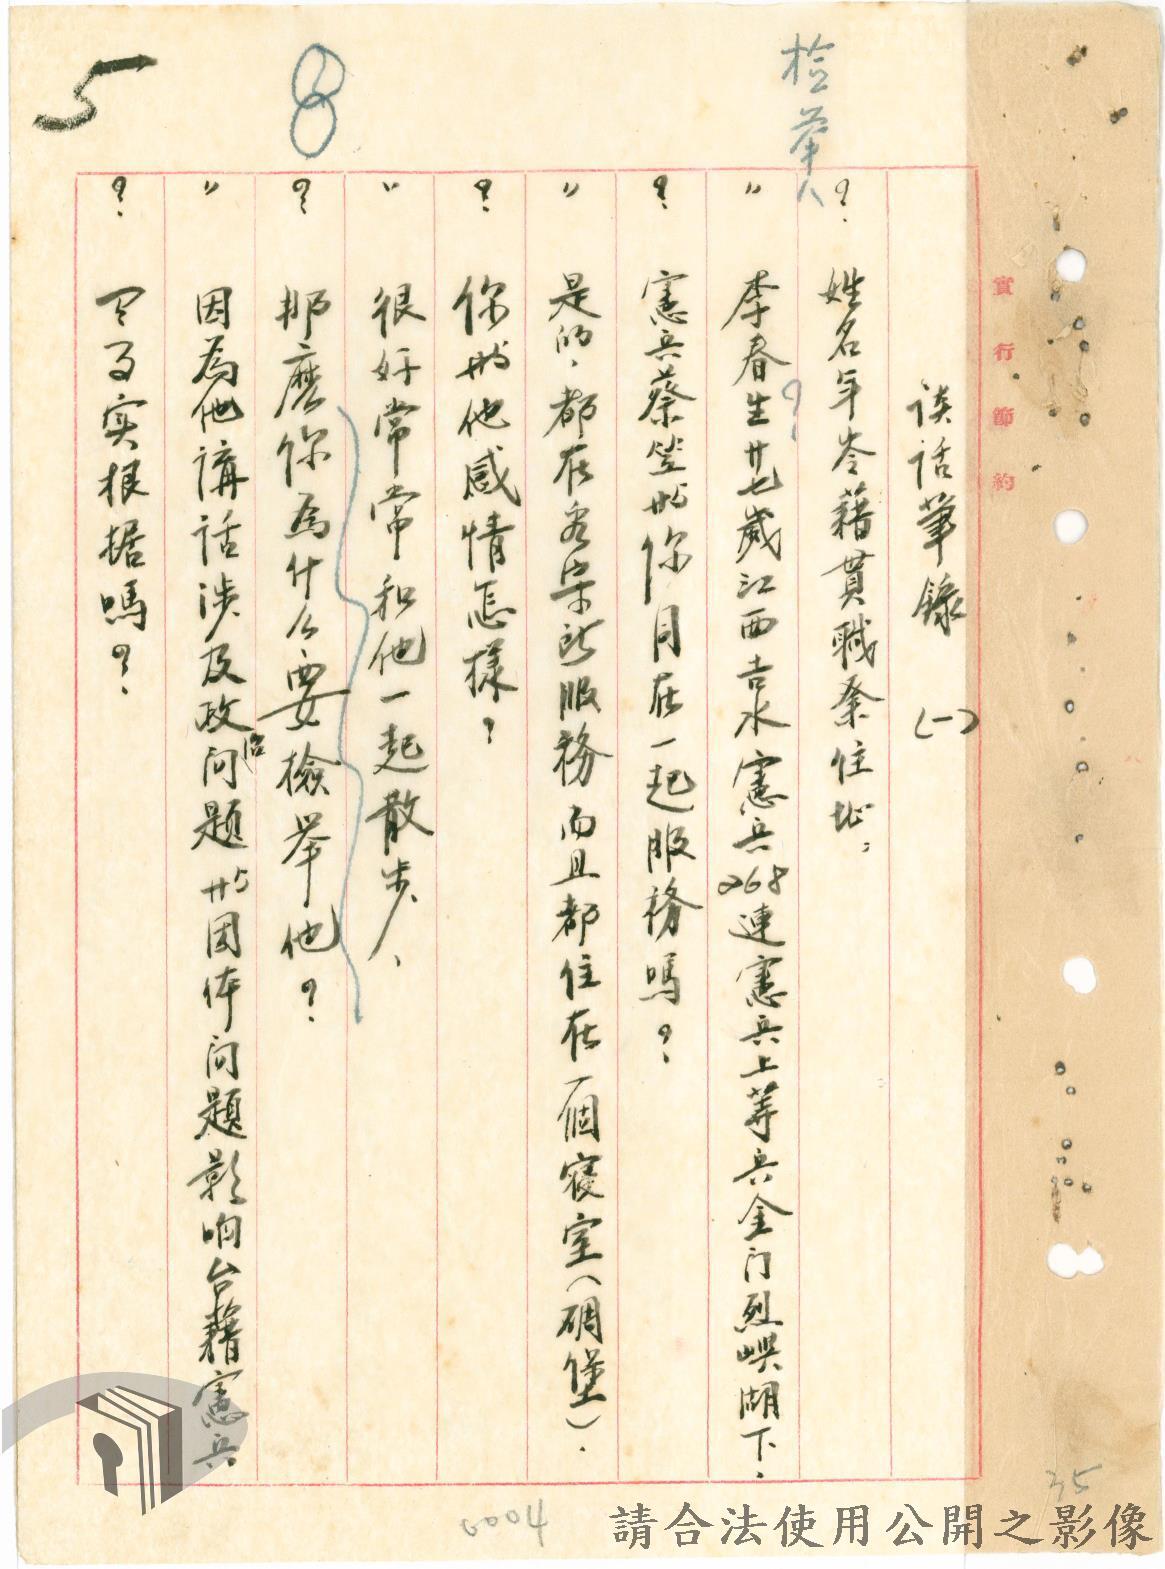 5
8
检举人
實行節約
談話筆錄 (一)
? 姓名年岺藉貫職業住址。
〃 李春生廿七歲江西吉水憲兵268連憲兵上等兵金门烈嶼湖下。
? 憲兵蔡笠㪯你同在一起服務嗎?
〃 是的,都在 服務而且都住在一個寝室(碉堡)。
? 你與他感情怎樣?
〃 很好常常和他一起散步、
? 那麽你為什么要檢举他?
〃 因為他講話涉及政治问題與团体问題影响台藉憲兵
? 有事实根据嗎?
35
0004
請合法使用公開之影像